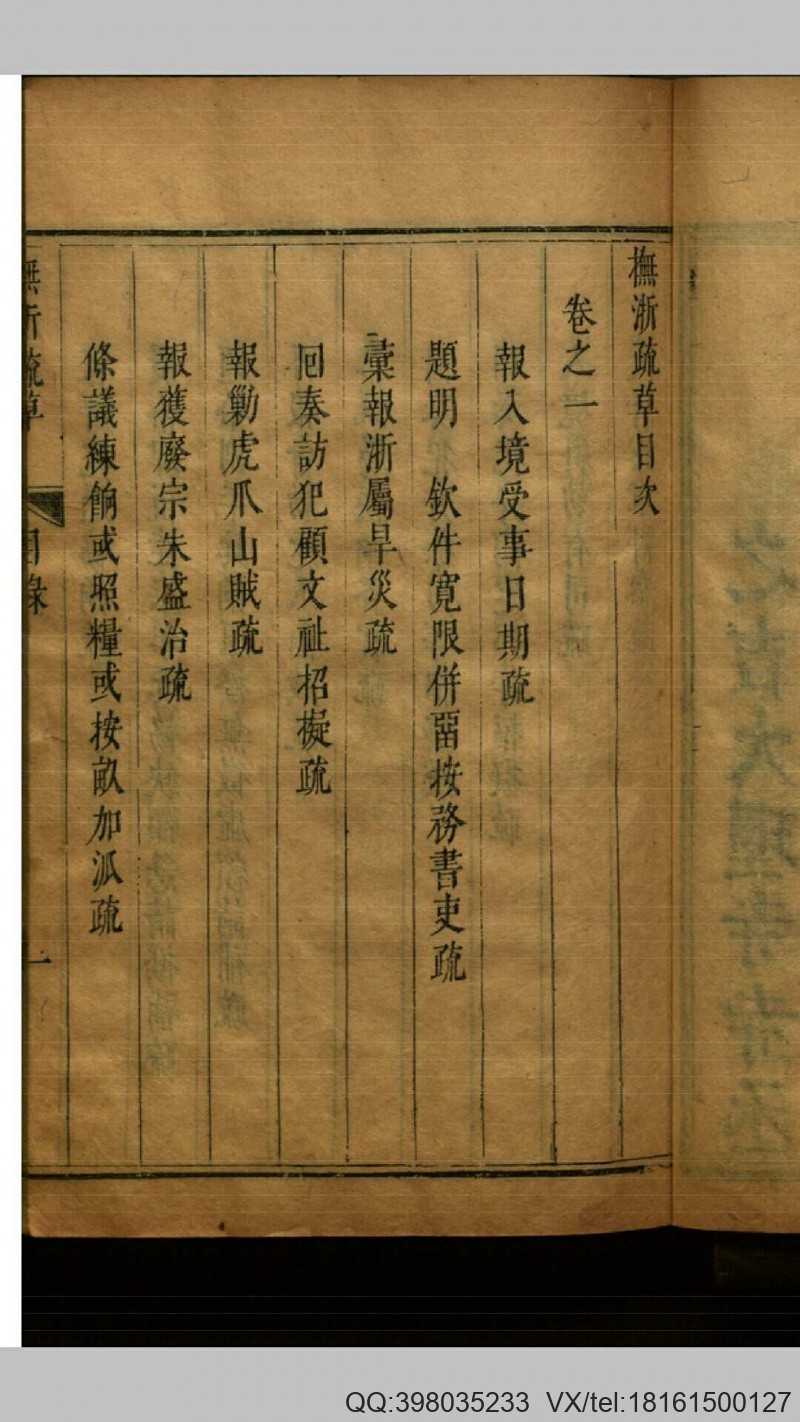 撫浙疏草目次
卷之一
報入境受事日期疏
題明　欽件寬限併畱按務書吏疏
彙報浙屬旱災疏
囘奏訪犯顧文祉招擬疏
報勦虎爪山賊疏
報獲廢宗朱盛治疏
條議練餉或照糧或按畝加派疏
撫浙疏草　目錄　一
QQ:398035233 VX/tel:18161500127